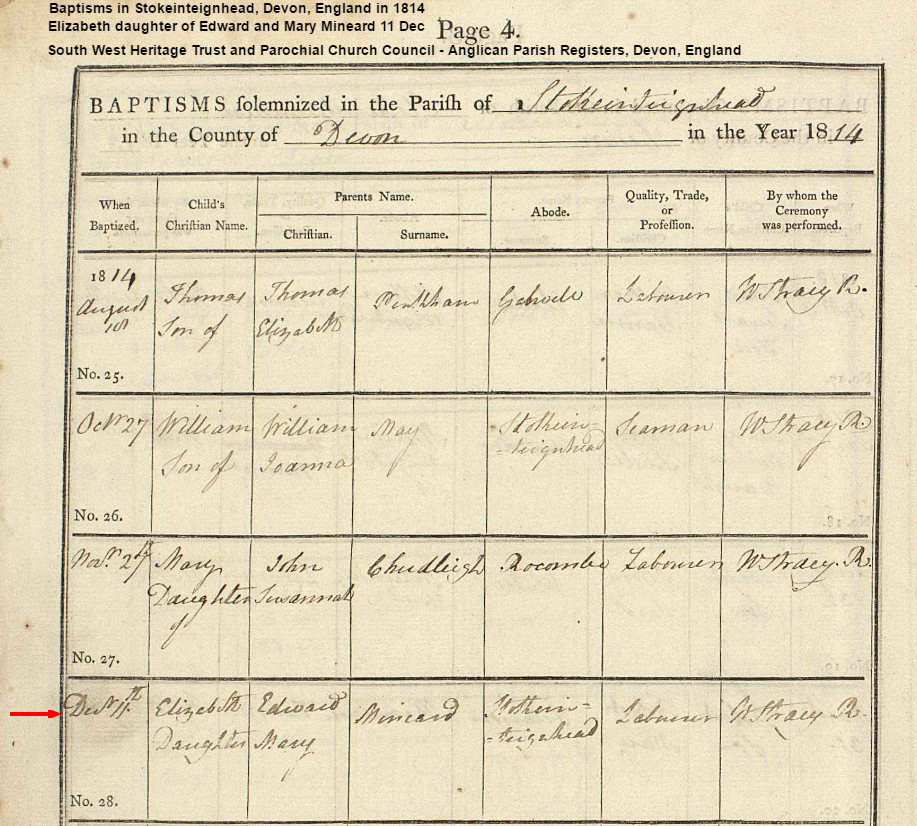 Baptisms in Stokeinteignhead, Devon, England in 1814
Elizabeth daughter of Edward and Mary Mineard 11 Dec
Page 4.
South West Heritage Trust and Parochial Church Council - Anglican Parish Registers, Devon, England
BAPTISMS solemnized in the Parish of Stokeinteignhead
in the County of Devon in the Year 1814
When Baptized.
Child's Christian Name.
Parents Name.
Christian.
Surname.
Abode.
Quality, Trade, or Profession.
By whom the Ceremony was performed.
1814
August 18
Thomas Son of
Thomas Elizabeth
Penkham
Labourer
W Stracy R.
No. 25.
Octr 27
William Son of
William Joanna
May
Stokeinteignhead
Seaman
W Stracy R.
No. 26.
Novr 27th
Mary Daughter of
John Susannah
Chudleigh
Rocombe
Labourer
W Stracy. R.
No. 27.
Decr 11th
Elizabeth Daughter
Edward Mary
Mineard
Stokein=
=teignhead
Labourer
W Stracy R.
No. 28.